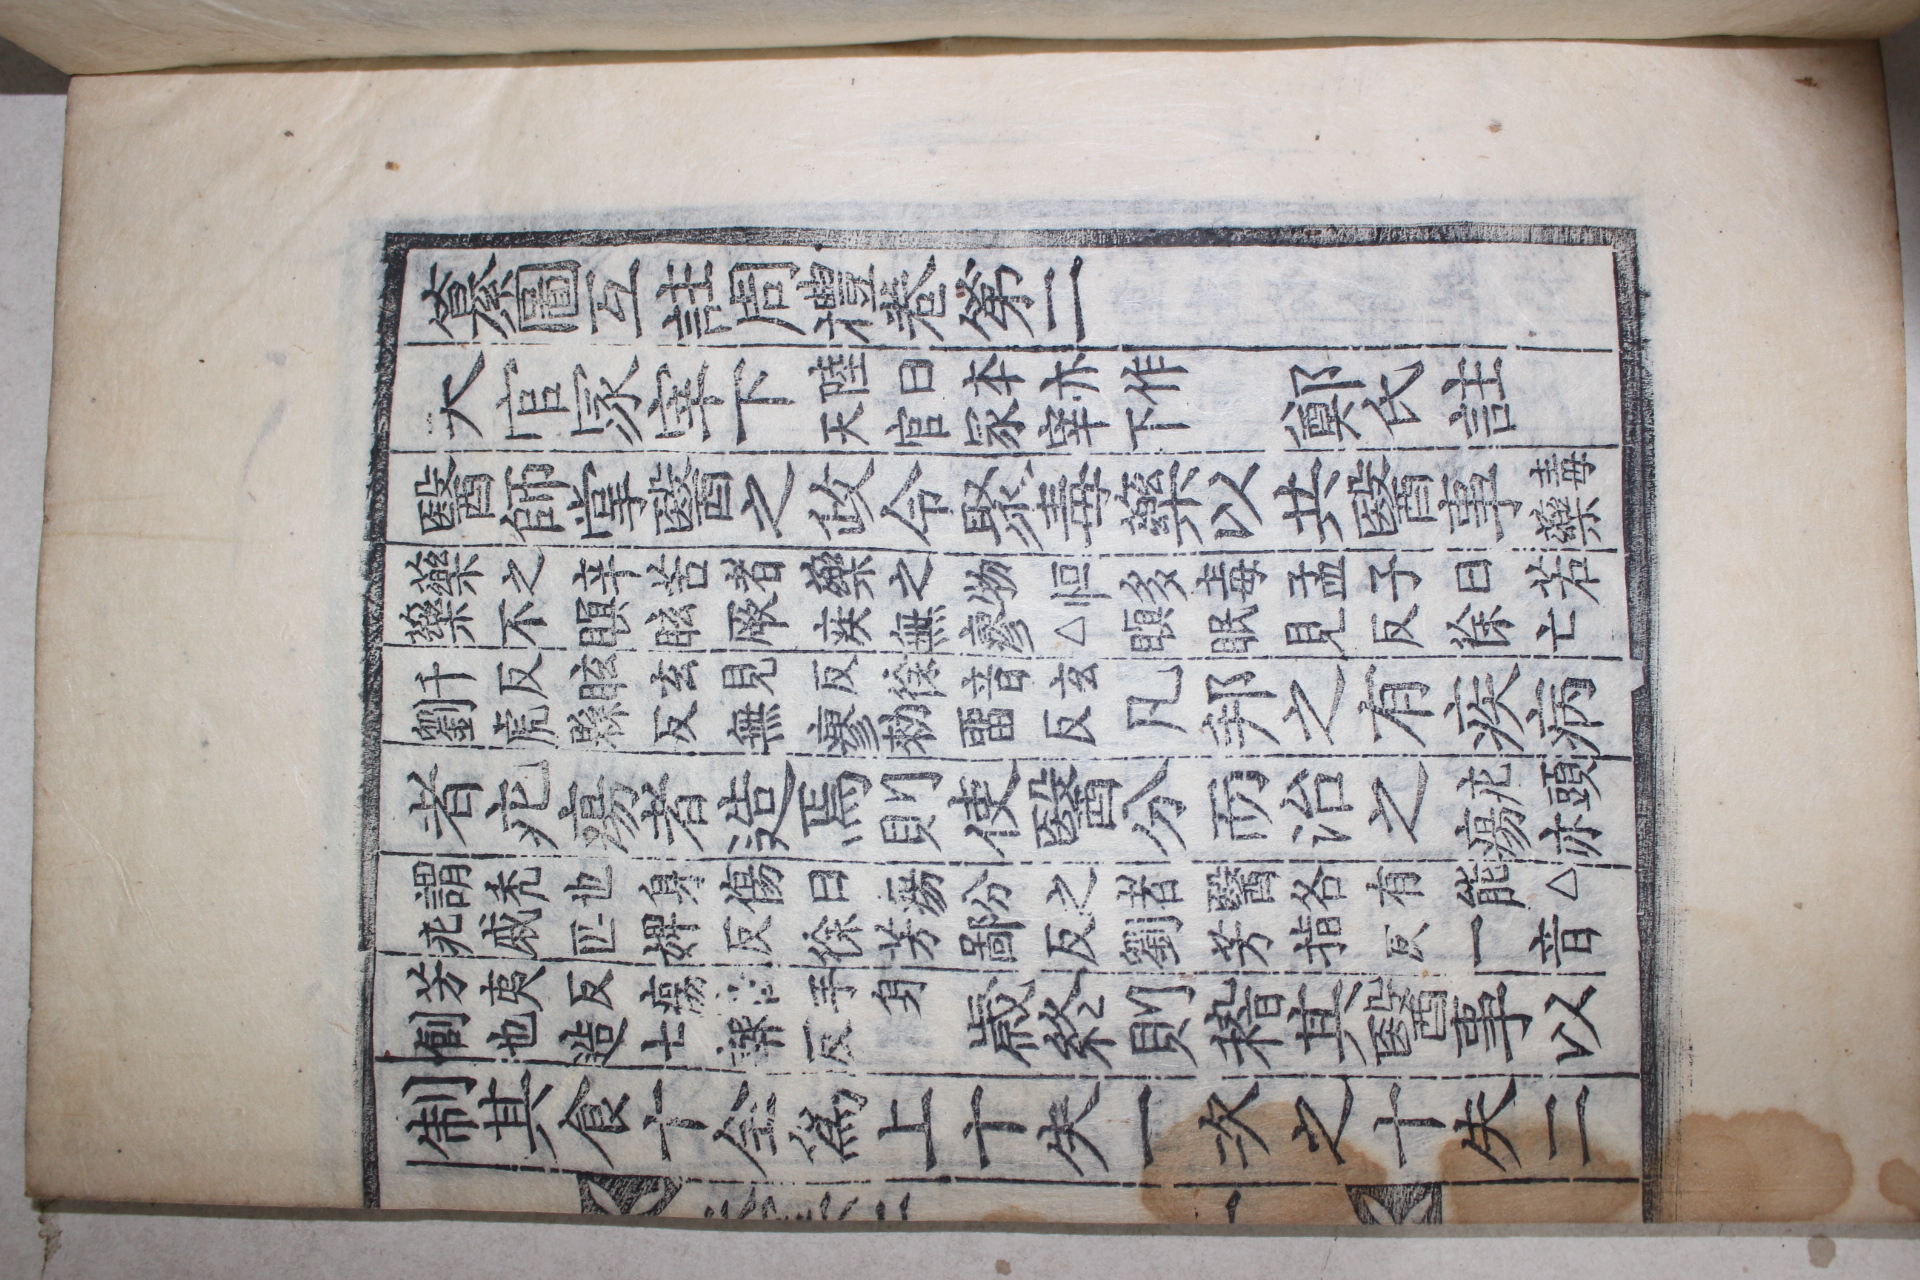 纂圖互註周禮卷第二
大官冢宰下陸曰本亦作天官冢宰下 鄭氏註
醫師掌醫之政令聚毒藥以共醫事毒藥
藥之辛苦者藥之物恒多毒孟子曰若藥不瞑眩厥疾無瘳△瞑眠見反徐亡
千反眩玄見反徐音玄劉虎縣反無瘳勑留反凡邦之有疾病
者疕瘍者造焉則使醫分而治之疕頭瘍亦
謂禿也身傷曰瘍分之者醫各有能△疕戚匹婢反徐芳鄙反劉芳指反一音
芳夷反瘍羊身創也造七反歲終則稽其醫事以
制其食十全爲上十失一次之十失二